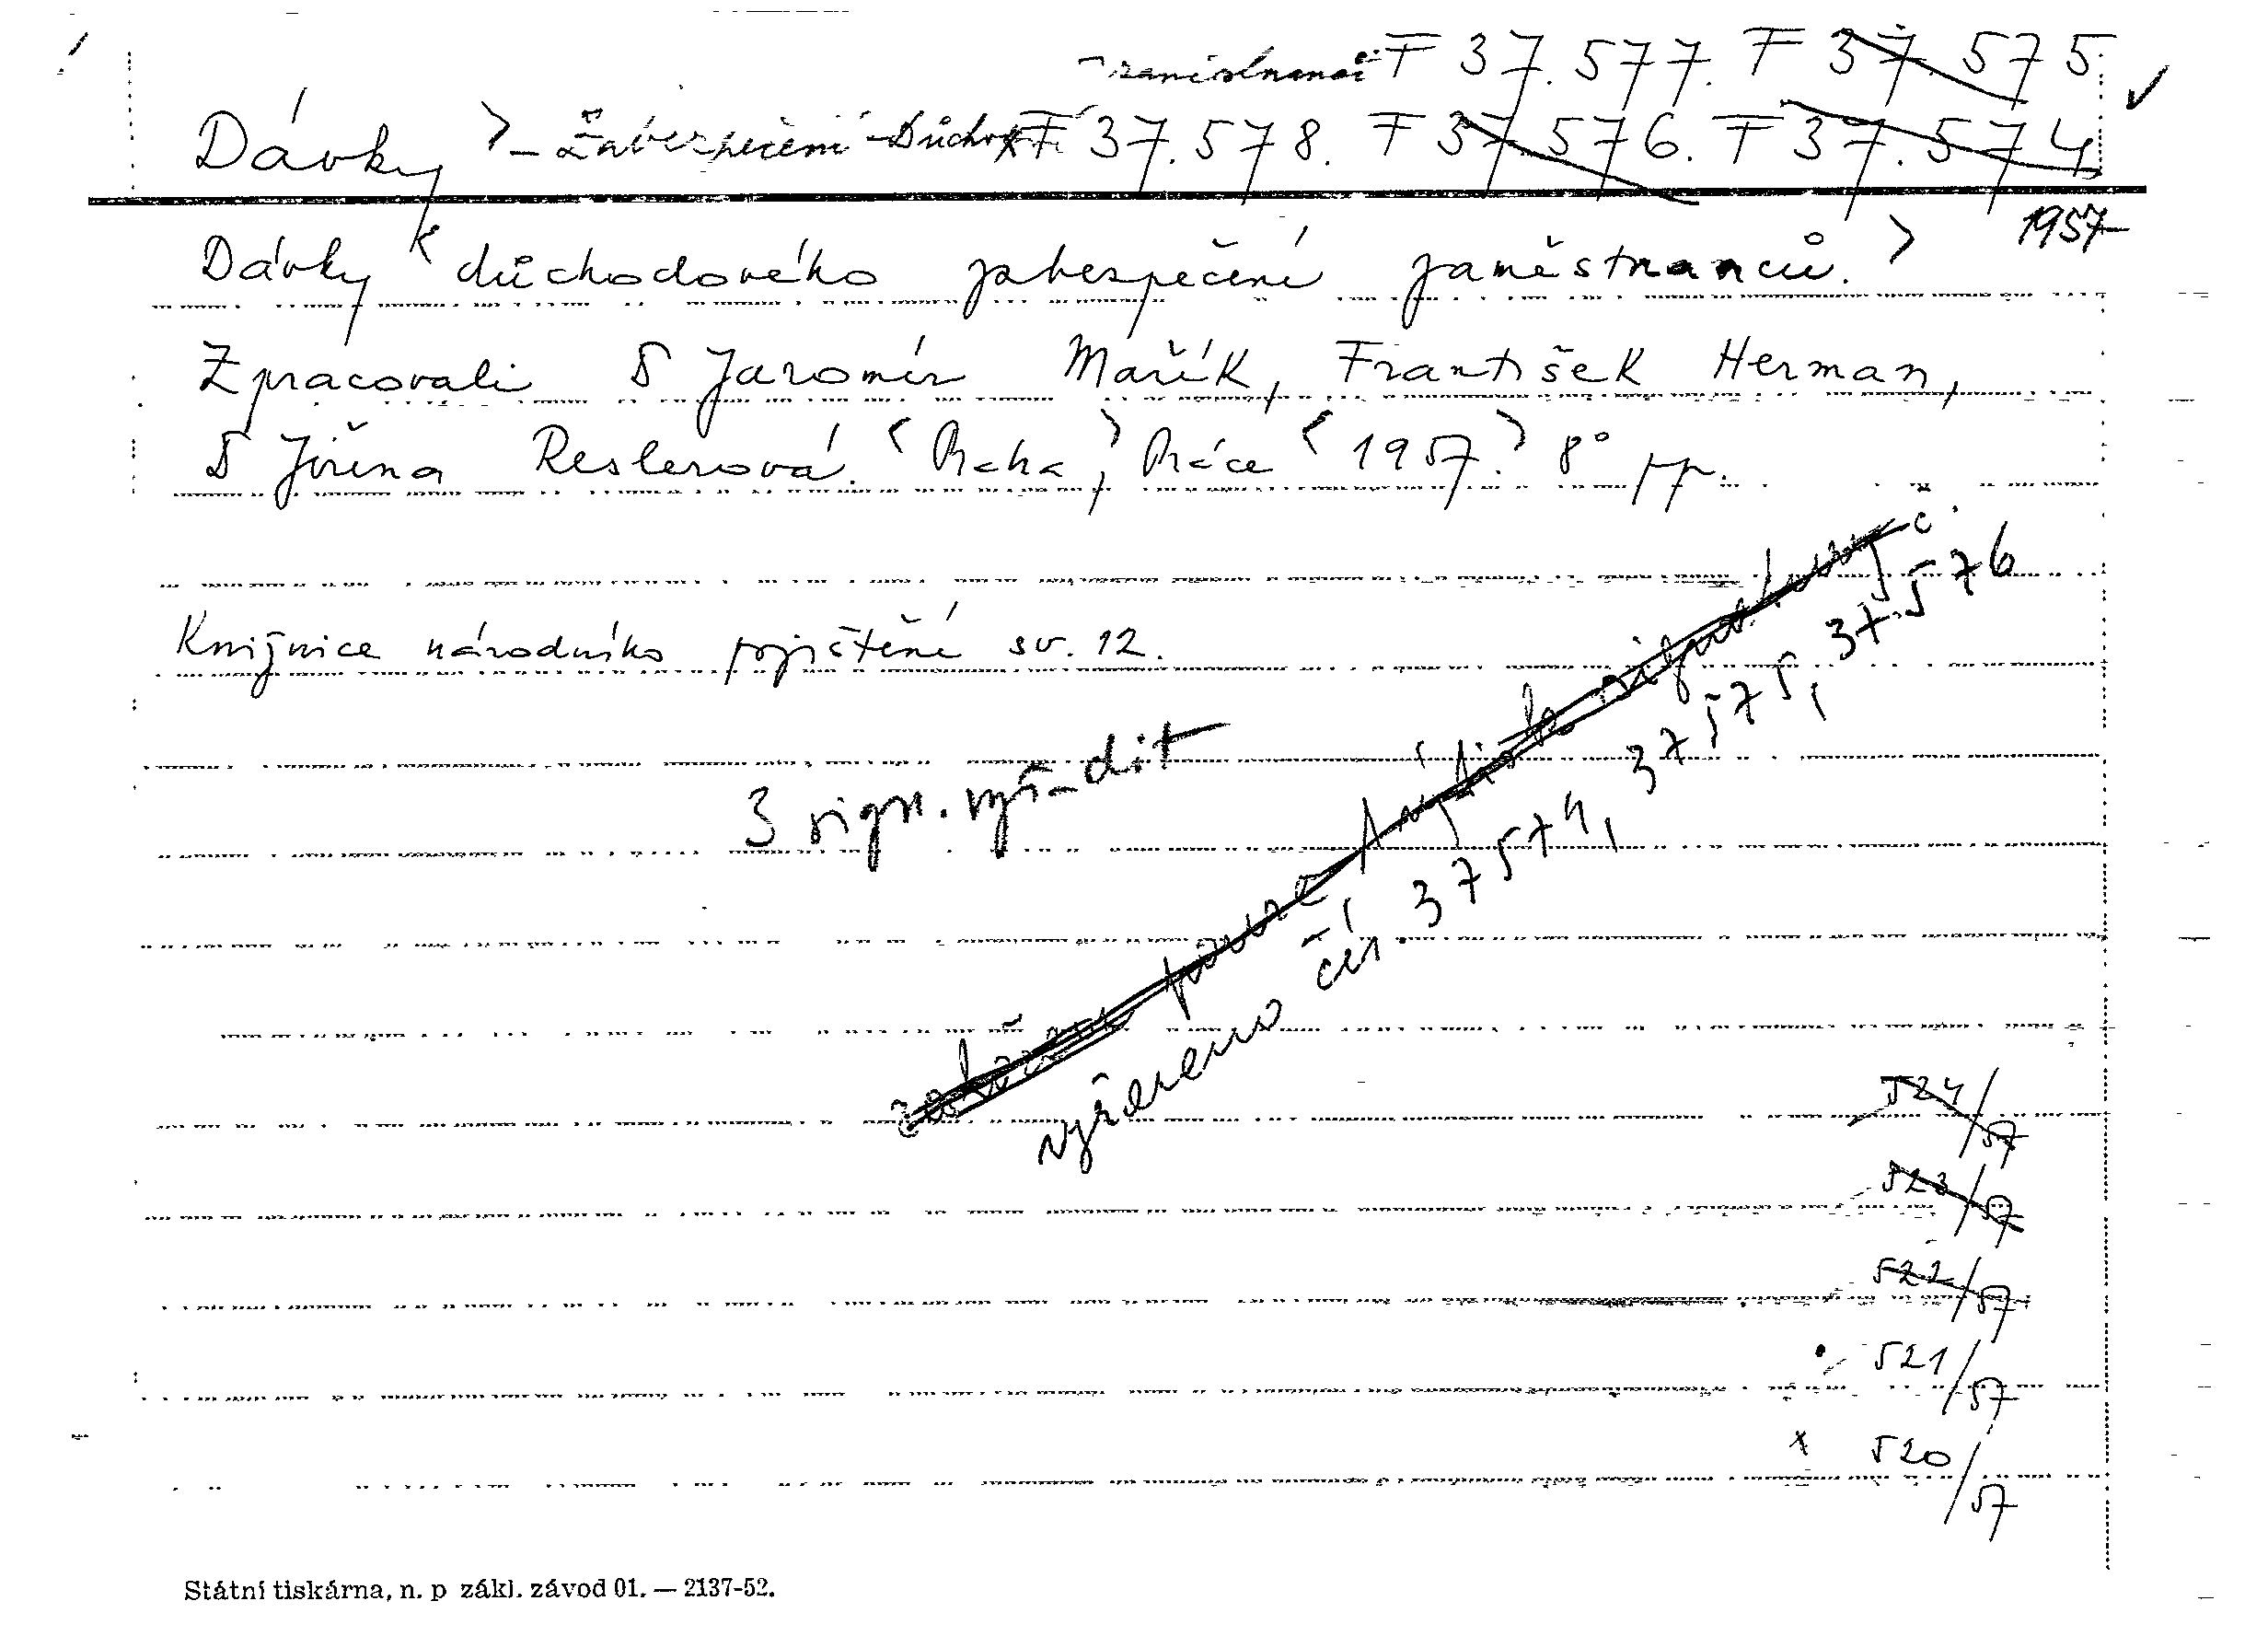 zaměstnanci F 37.577. F 37.575
Dávky > - Zabezpečení - Důchod F 37.578. F 37.576. F 37.574
1957
Dávky < důchodového zabezpečení zaměstnanců. >
Zpracovali D Jaromír Mařík, František Herman,
D Jiřina Reslerová. < Praha, > Práce < 1957. > 8° pp.
Knižnice národního pojištění sv. 12.
3 sign. vyřadit
vyřazeno čís. 37574, 37575, 37.576
524/57
523/57
522/57
521/57
x 520/57
Státní tiskárna, n. p zákl. závod 01. — 2137-52.